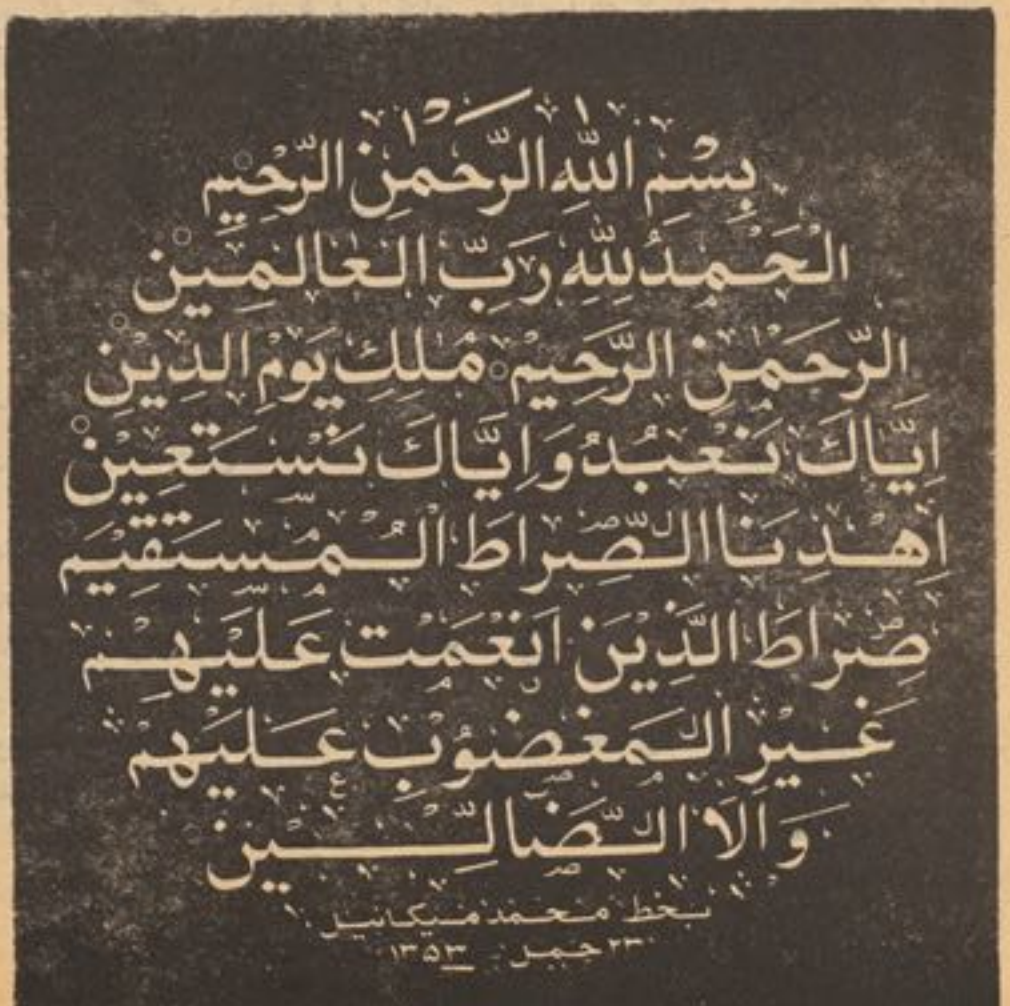 بِسْمِ اللّٰهِ الرَّحْمٰنِ الرَّحِيْمِ
الْحَمْدُ لِلّٰهِ رَبِّ الْعَالَمِيْنَ
الرَّحْمٰنِ الرَّحِيْمِ مٰلِكِ يَوْمِ الدِّيْنِ
اِيَّاكَ نَعْبُدُ وَاِيَّاكَ نَسْتَعِيْنُ
اِهْدِنَا الصِّرَاطَ الْمُسْتَقِيْمَ
صِرَاطَ الَّذِيْنَ اَنْعَمْتَ عَلَيْهِمْ
غَيْرِ الْمَغْضُوْبِ عَلَيْهِمْ
وَلَا الضَّالِّيْنَ
بخط محمد میکائیل
۲۳ حمل ۱۳۵۳